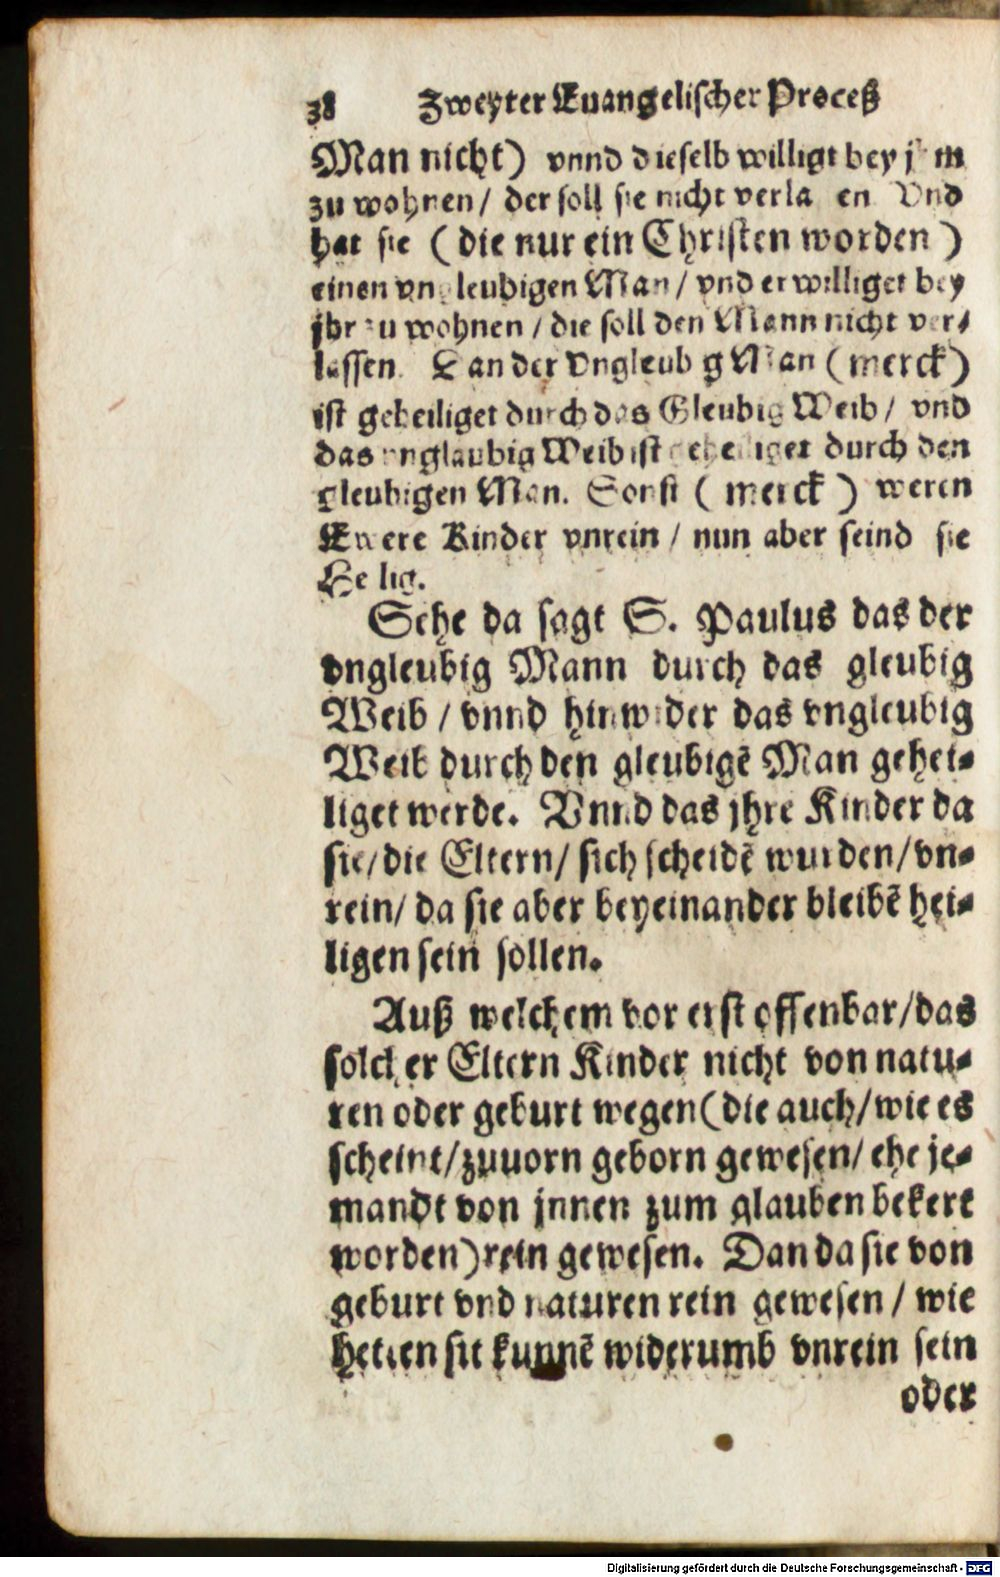 38 Zweyter Euangelischer Proceß
Man nicht) vnnd dieselb williget bey jhm
zu wohnen / der soll sie nicht verlassen Vnd
hat sie ( die nur ein Christen worden )
einen vngleubigen Man / vnd er williget bey
jhr zu wohnen / die soll den Mann nicht ver-
lassen. Dan der Vngleubig Man ( merck )
ist geheiliget durch das Gleubig Weib / vnd
das vnglaubig Weib ist geheiliget durch den
gleubigen Man. Sonst ( merck ) weren
Ewere Kinder vnrein / nun aber seind sie
Heilig.
Sehe da sagt S. Paulus das der
vngleubig Mann durch das gleubig
Weib / vnnd hinwider das vngleubig
Weib durch den gleubigē Man gehei-
liget werde. Vnnd das jhre Kinder da
sie/die Eltern/ sich scheidē wurden/vn-
rein/ da sie aber beyeinander bleibē hei-
ligen sein sollen.
Auß welchem vor erst offenbar/das
solcher Eltern Kinder nicht von natu-
ren oder geburt wegen(die auch/wie es
scheint/zuuorn geborn gewesen/ ehe je-
mandt von jnnen zum glauben bekert
worden)rein gewesen. Dan da sie von
geburt vnd naturen rein gewesen / wie
hetten sie kunnē widerumb vnrein sein
oder
Digitalisierung gefördert durch die Deutsche Forschungsgemeinschaft - DFG